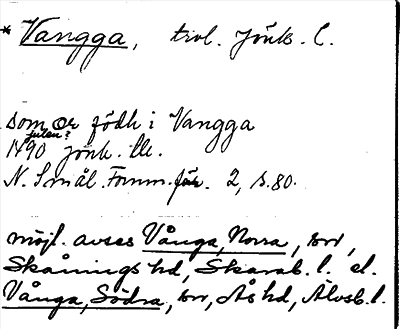 * Vangga, trol. Jönk. L.
som er födh i Vangga
julen?
1490 Jönk. tb.
N. Smål. Fornm.för. 2, s. 80.
möjl. avses Vånga, Norra, sn,
Skånings hd, Skarab. l. el.
Vånga, Södra, sn, Ås hd, Älvsb. l.